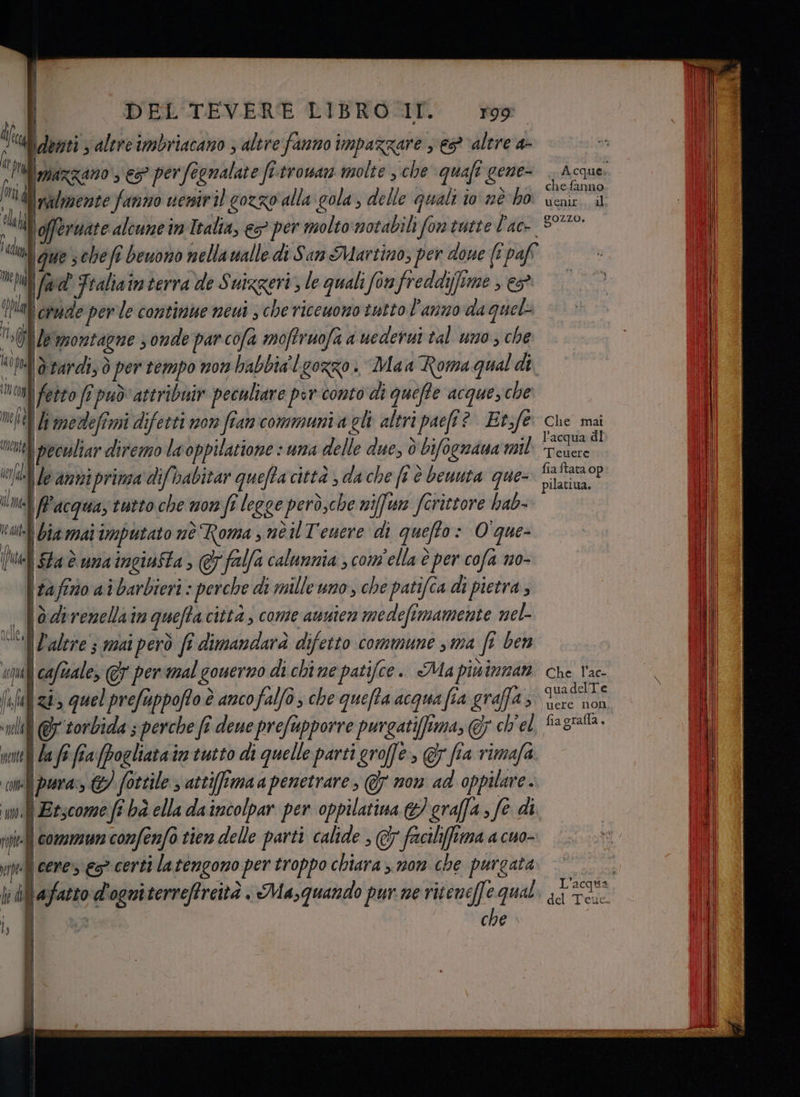 DEL TEVERE LIBRO II. 199
denti, altre imbriacano, altre fanno impazzare, & altre a-
mazzano, & per segnalate si trouan molte, che quasi gene-
ralmente fanno uenir il gozzo alla gola, delle quali io nè ho
osseruate alcune in Italia, & per molto notabili son tutte l'ac-
que, che si beuono nella ualle di San Martino, per doue si pas
sa d' Italia in terra de Suizzeri, le quali son freddissime, &
crude per le continue neui, che riceuono tutto l'anno da quel-
le montagne, onde par cosa mostruosa a uederui tal uno, che
ò tardi, ò per tempo non habbia 'l gozzo. Ma a Roma qual di
fetto si può attribuir peculiare per conto di queste acque, che
li medesimi difetti non sian communi a gli altri paesi? Et, se
peculiar diremo la oppilatione: una delle due, ò bisognaua mil
le anni prima dishabitar questa città, da che si è beuuta que-
st'acqua, tutto che non si legge però, che nissun scrittore hab-
bia mai imputato nè Roma, nè il Teuere di questo: O que-
sta è una ingiusta, & falsa calunnia, com'ella è per cosa no-
ta fino a i barbieri: perche di mille uno, che patisca di pietra,
ò di renella in questa città, come auuien medesimamente nel-
l'altre; mai però si dimandarà difetto commune, ma si ben
casuale, & per mal gouerno di chi ne patisce. Ma più innan
zi, quel presupposto è anco falso, che questa acqua sia grassa,
& torbida; perche si deue presupporre purgatissima, & ch'el
la si sia spogliata in tutto di quelle parti grosse, & sia rimasa
pura, & sottile, attissima a penetrare, & non ad oppilare.
Et, come si hà ella da incolpar per oppilatiua & grassa, se di
commun consenso tien delle parti calide, & facilissima a cuo-
cere, & certi la tengono per troppo chiara, non che purgata
afatto d'ogni terrestreità. Ma, quando pur ne ritenesse qual
che
Acque
che fanno
uenir il
gozzo.
Che mai
l'acqua dl
Teuere
sia stata op
pilatiua.
Che l'ac-
qua del Te
uere non
sia grassa.
L'acqua
del Teue-